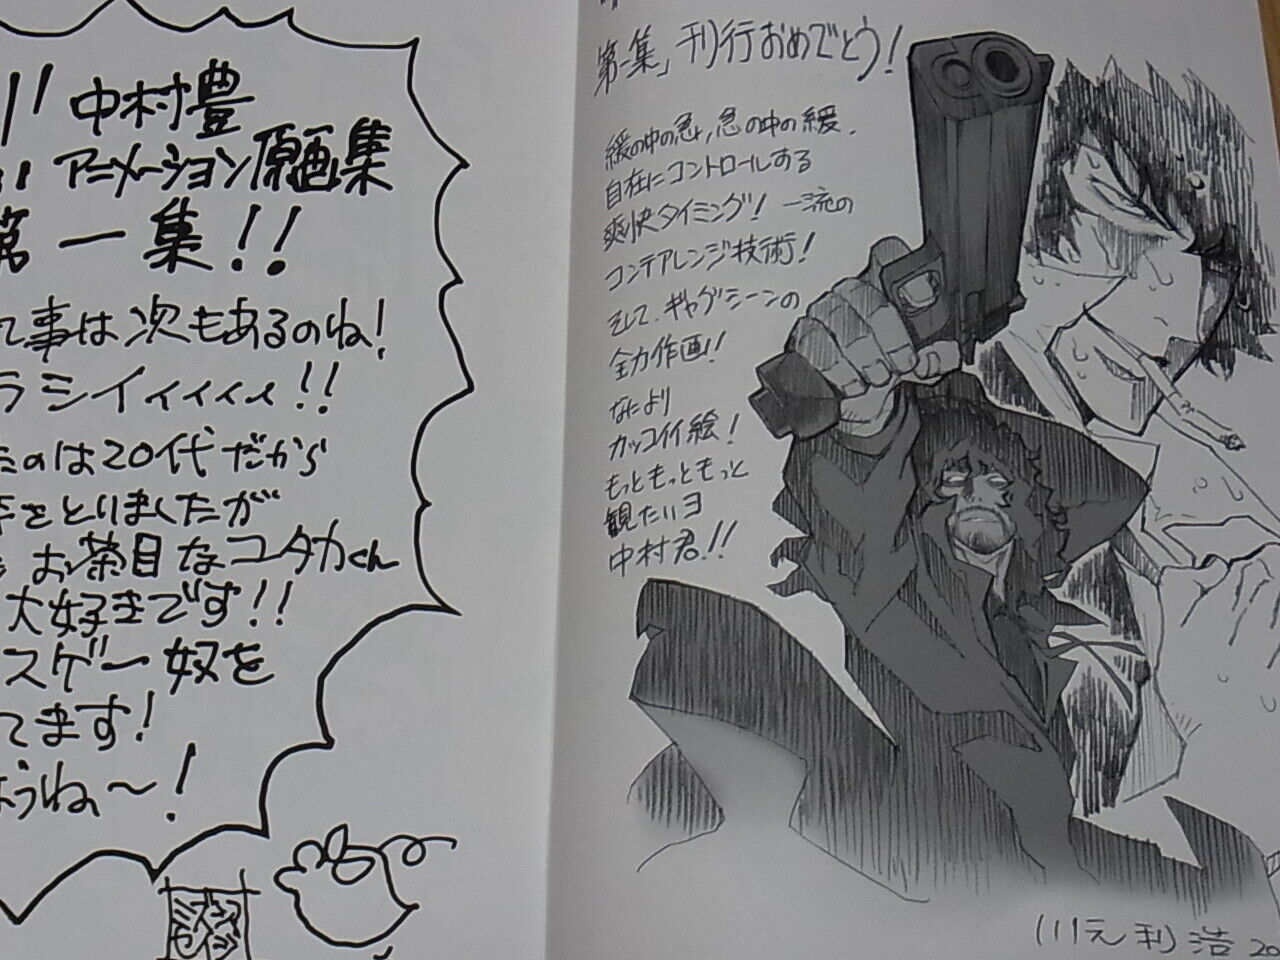 中村豊
アニメーション原画集
第一集!!
て事は次もあるのね!
ラシイィィィィ!!
たのは20代だから
をとりましたが
お茶目なユタカくん
大好きです!!
スゲー奴を
てます!
ようね〜!
ミズシマ
セイジ
第一集」刊行おめでとう!
緩の中の急,急の中の緩.
自在にコントロールする
爽快タイミング! 一流の
コンテアレンジ技術!
そして、ギャグシーンの
全力作画!!
なにより
カッコイイ絵!
もっともっともっと
観たいヨ
中村君!!
川元利浩 20